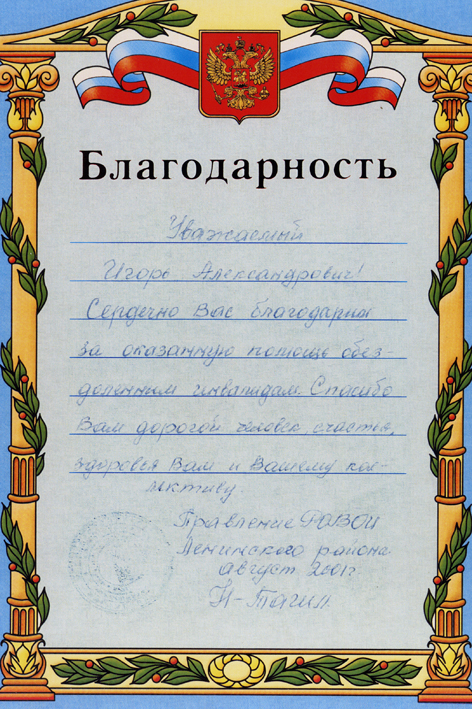 Благодарность
Уважаемый
Игорь Александрович!
Сердечно Вас благодарим
за оказанную помощь обез-
доленным инвалидам. Спасибо
Вам дорогой человек, счастья,
здоровья Вам и Вашему кол-
лективу.
Правление
Ленинского района
август 2001г
Н-Тагил